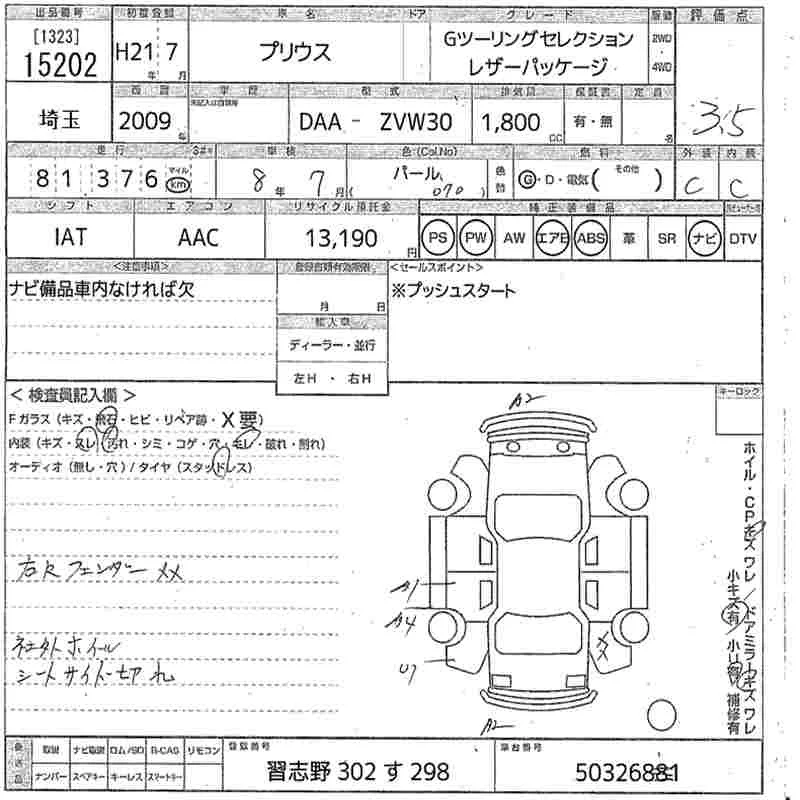 出品番号 初度登録 車名 ドア グレード 駆動 評価点
[1323]
15202 H21年 7月 プリウス Gツーリングセレクション レザーパッケージ 2WD 4WD 3.5
西暦 車歴 型式 排気量 保証書 定員
埼玉 2009年 未記入は自家用 DAA - ZVW30 1,800cc 有・無 名
走行 車検 色(Col,No) 燃料 外装 内装
81376 マイル km 8年 7月( パール 070) 色替 G・D・電気( その他 ) C C
シフト エアコン リサイクル預託金 純正装備品
IAT AAC 13,190円 PS PW AW エアB ABS 革 SR ナビ DTV
<注意事項> 登録書類有効期限 <セールスポイント>
ナビ備品車内なければ欠 月 日 ※プッシュスタート
輸入車
ディーラー・並行
左H ・ 右H
<検査員記入欄> キーロック
Fガラス(キズ・飛石・ヒビ・リペア跡・X要)
内装(キズ・スレ・汚れ・シミ・コゲ・穴・モレ・破れ・割れ)
オーディオ(無し・穴)/タイヤ(スタッドレス)
A2
右Rフェンダー XX
A1
A4
U7
XX
A2
ホイル
シートサイド 切れ
ホイル・CPキズ ワレ/ドアミラーキズ ワレ
小キズ有/小凹有/補修有
取説 ナビ取説 ロム/SD B-CAS リモコン 登録番号 車台番号
ナンバー スペアキー キーレス スマートキー 習志野 302 す 298 50326881